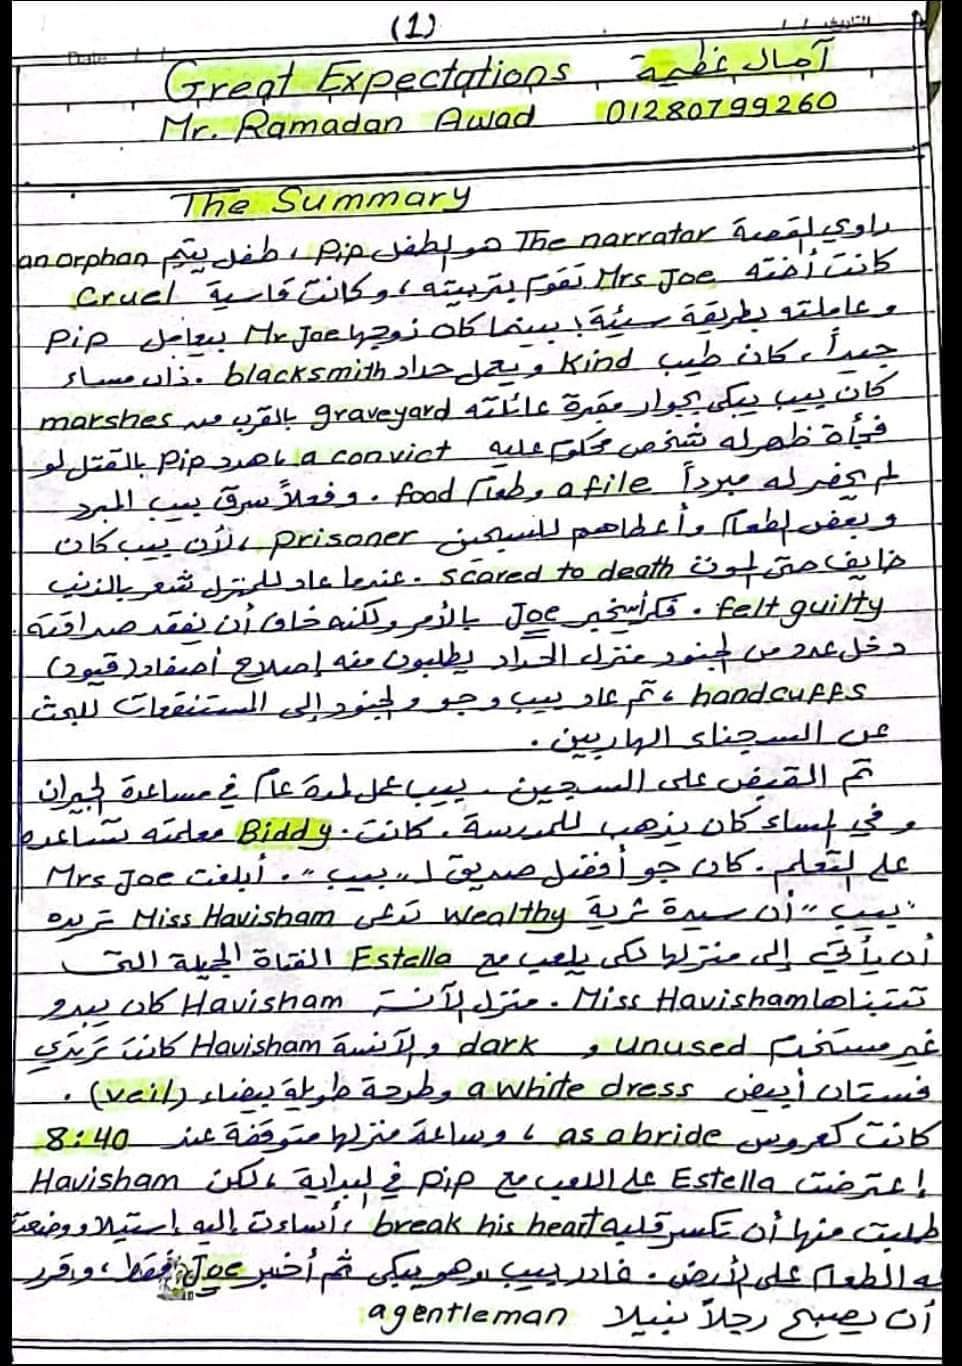 (1)
Date / /
التاريخ / /
Great Expectations آمال عظيمة
Mr. Ramadan Awad 01280799260
The Summary
راوي القصة The narrator هو الطفل Pip ، طفل يتيم an orphan
كانت أخته Mrs Joe تقوم بتربيته ، وكانت قاسية Cruel
وعاملته بطريقة سيئة ! بينما كان زوجها Mr Joe يعامل Pip
جيداً ، كان طيب Kind ويعمل حداد blacksmith . ذات مساء
كان بيب يبكى بجوار مقبرة عائلته graveyard بالقرب من marshes
فجأة ظهر له شخص محكوم عليه a convict ، هدد Pip بالقتل لو
لم يحضر له مبرداً a file وطعام food . وفعلاً سرق بيب المبرد
وبعض الطعام وأعطاهم للسجين prisoner ، لأن بيب كان
خايف حتى الموت scared to death . عندما عاد للمنزل شعر بالذنب
felt guilty . فكر أن يخبر Joe بالأمر ولكنه خاف أن يفقد صداقته
دخل عدد من الجنود منزل الحداد يطلبون منه إصلاح أصفاد (قيود)
handcuffs ، ثم عاد بيب وجو والجنود إلى المستنقعات للبحث
عن السجناء الهاربين .
تم القبض على السجين . بيب عمل لمدة عام في مساعدة الجيران
وفي المساء كان يذهب للمدرسة . كانت Biddy معلمته تساعده
على التعلم . كان جو أفضل صديق لـ "بيب" . أبلغت Mrs Joe
"بيب" أن سيدة ثرية wealthy تدعى Miss Havisham تريده
أن يأتي إلى منزلها لكى يلعب مع Estella الفتاة الجميلة التى
تتبناها Miss Havisham . منزل الآنسة Havisham كان يبدو
غير مستخدم unused و dark والآنسة Havisham كانت ترتدي
فستان أبيض a white dress وطرحة طويلة بيضاء (veil) .
كانت كعروس as a bride ، وساعة منزلها متوقفة عند 8:40
إعترضت Estella على اللعب مع Pip في البداية ، لكن Havisham
طلبت منها أن تكسر قلبه break his heart ، أساءت إليه إستيلا ووضعت
له الطعام على الأرض . غادر بيب وهو يبكى ثم أخبر Joe فقط ، وقرر
أن يصبح رجلاً نبيلا a gentleman